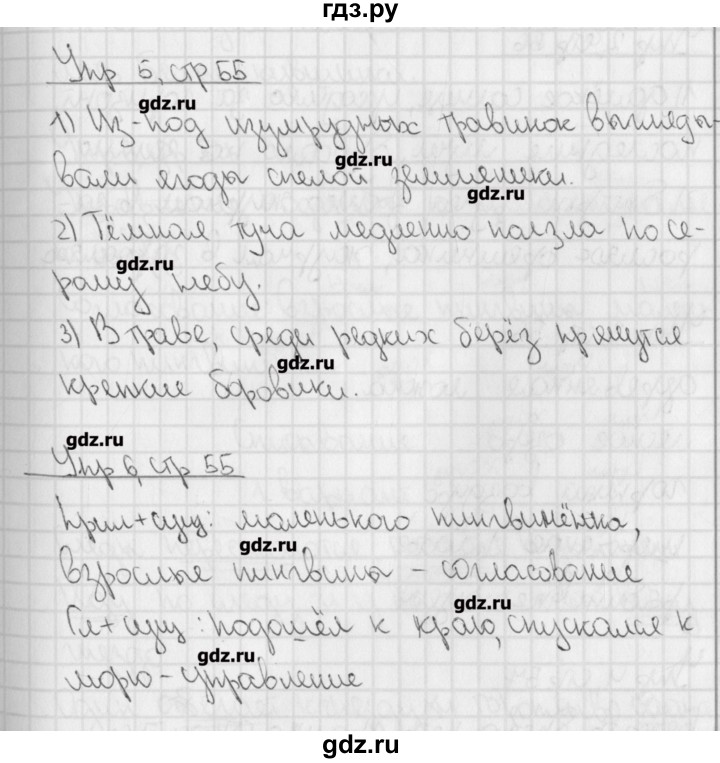 гдз.ру
Упр 5, стр 55
gdz.ru
1) Из-под изумрудных травинок выгляды-
gdz.ru
вали ягоды спелой земляники.
gdz.ru
2) Тёмная туча медленно ползла по се-
gdz.ru
рому небу.
3) В траве, среди редких берёз прячутся
gdz.ru
крепкие боровики.
gdz.ru
Упр 6, стр 55
Прил+сущ: маленького пингвинёнка,
gdz.ru
взрослые пингвины - согласование
gdz.ru
Гл+сущ: подошёл к краю, спускался к
gdz.ru
морю - управление
gdz.ru